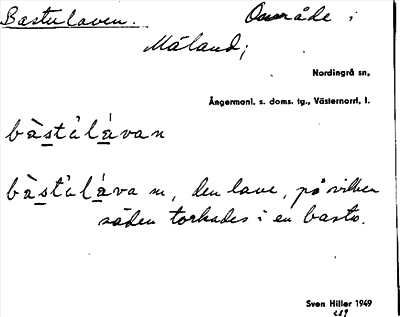 Bastulaven. Område i
Måland;
Nordingrå sn,
Ångermanl. s. doms. tg., Västernorrl. l.
bàstⁱlávan
bàstⁱláva m, den lave, på vilken
säden torkades i en bastu.
Sven Hiller 1949